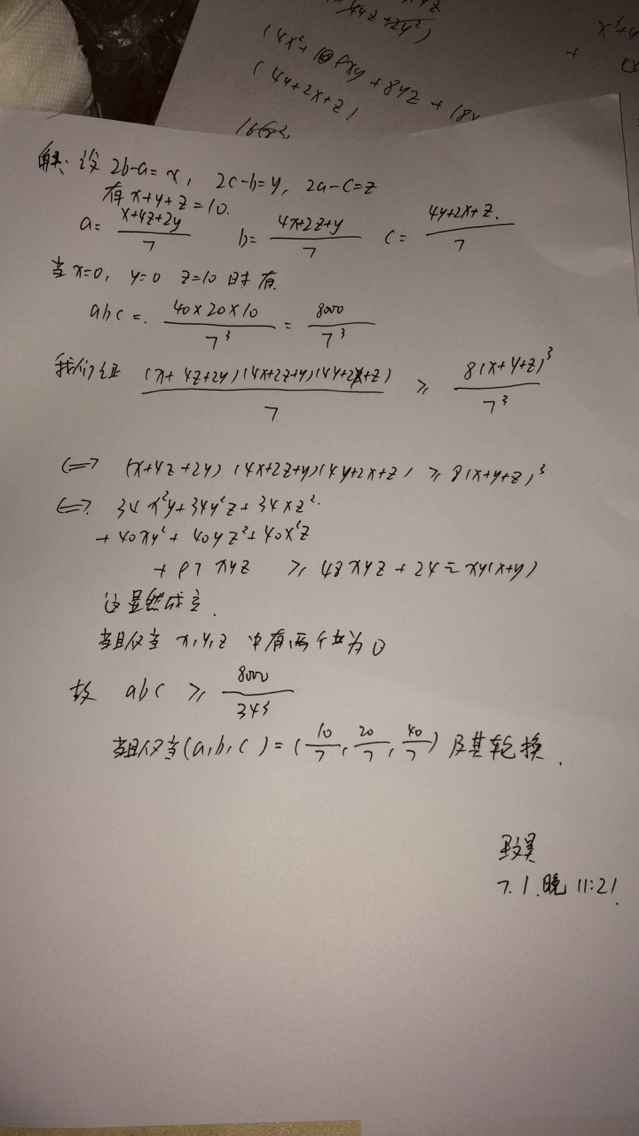 44z+2y²)
(4x²+
xy+8yz+18x
(4y+2x+z)
x³+4
+
解: 设 2b-a=x, 2c-b=y, 2a-c=z
有 x+y+z=10.
a= (x+4z+2y)/7 b= (4x+2z+y)/7 c= (4y+2x+z)/7
当 x=0, y=0 z=10 时有
abc = (40×20×10)/7³ = 8000/7³
我们证 (x+4z+2y)(4x+2z+y)(4y+2x+z)/7 ≥ 8(x+y+z)³/7³
⇔ (x+4z+2y)(4x+2z+y)(4y+2x+z) ≥ 8(x+y+z)³
⇔ 34x²y+34y²z+34xz²
+40xy²+40yz²+40x²z
+ xyz ≥ 48xyz+24Σxy(x+y)
这显然成立.
当且仅当 x,y,z 中有两个为0
故 abc ≥ 8000/343
当且仅当(a,b,c)=(10/7, 20/7, 40/7) 及其轮换.
7.1.晚 11:21